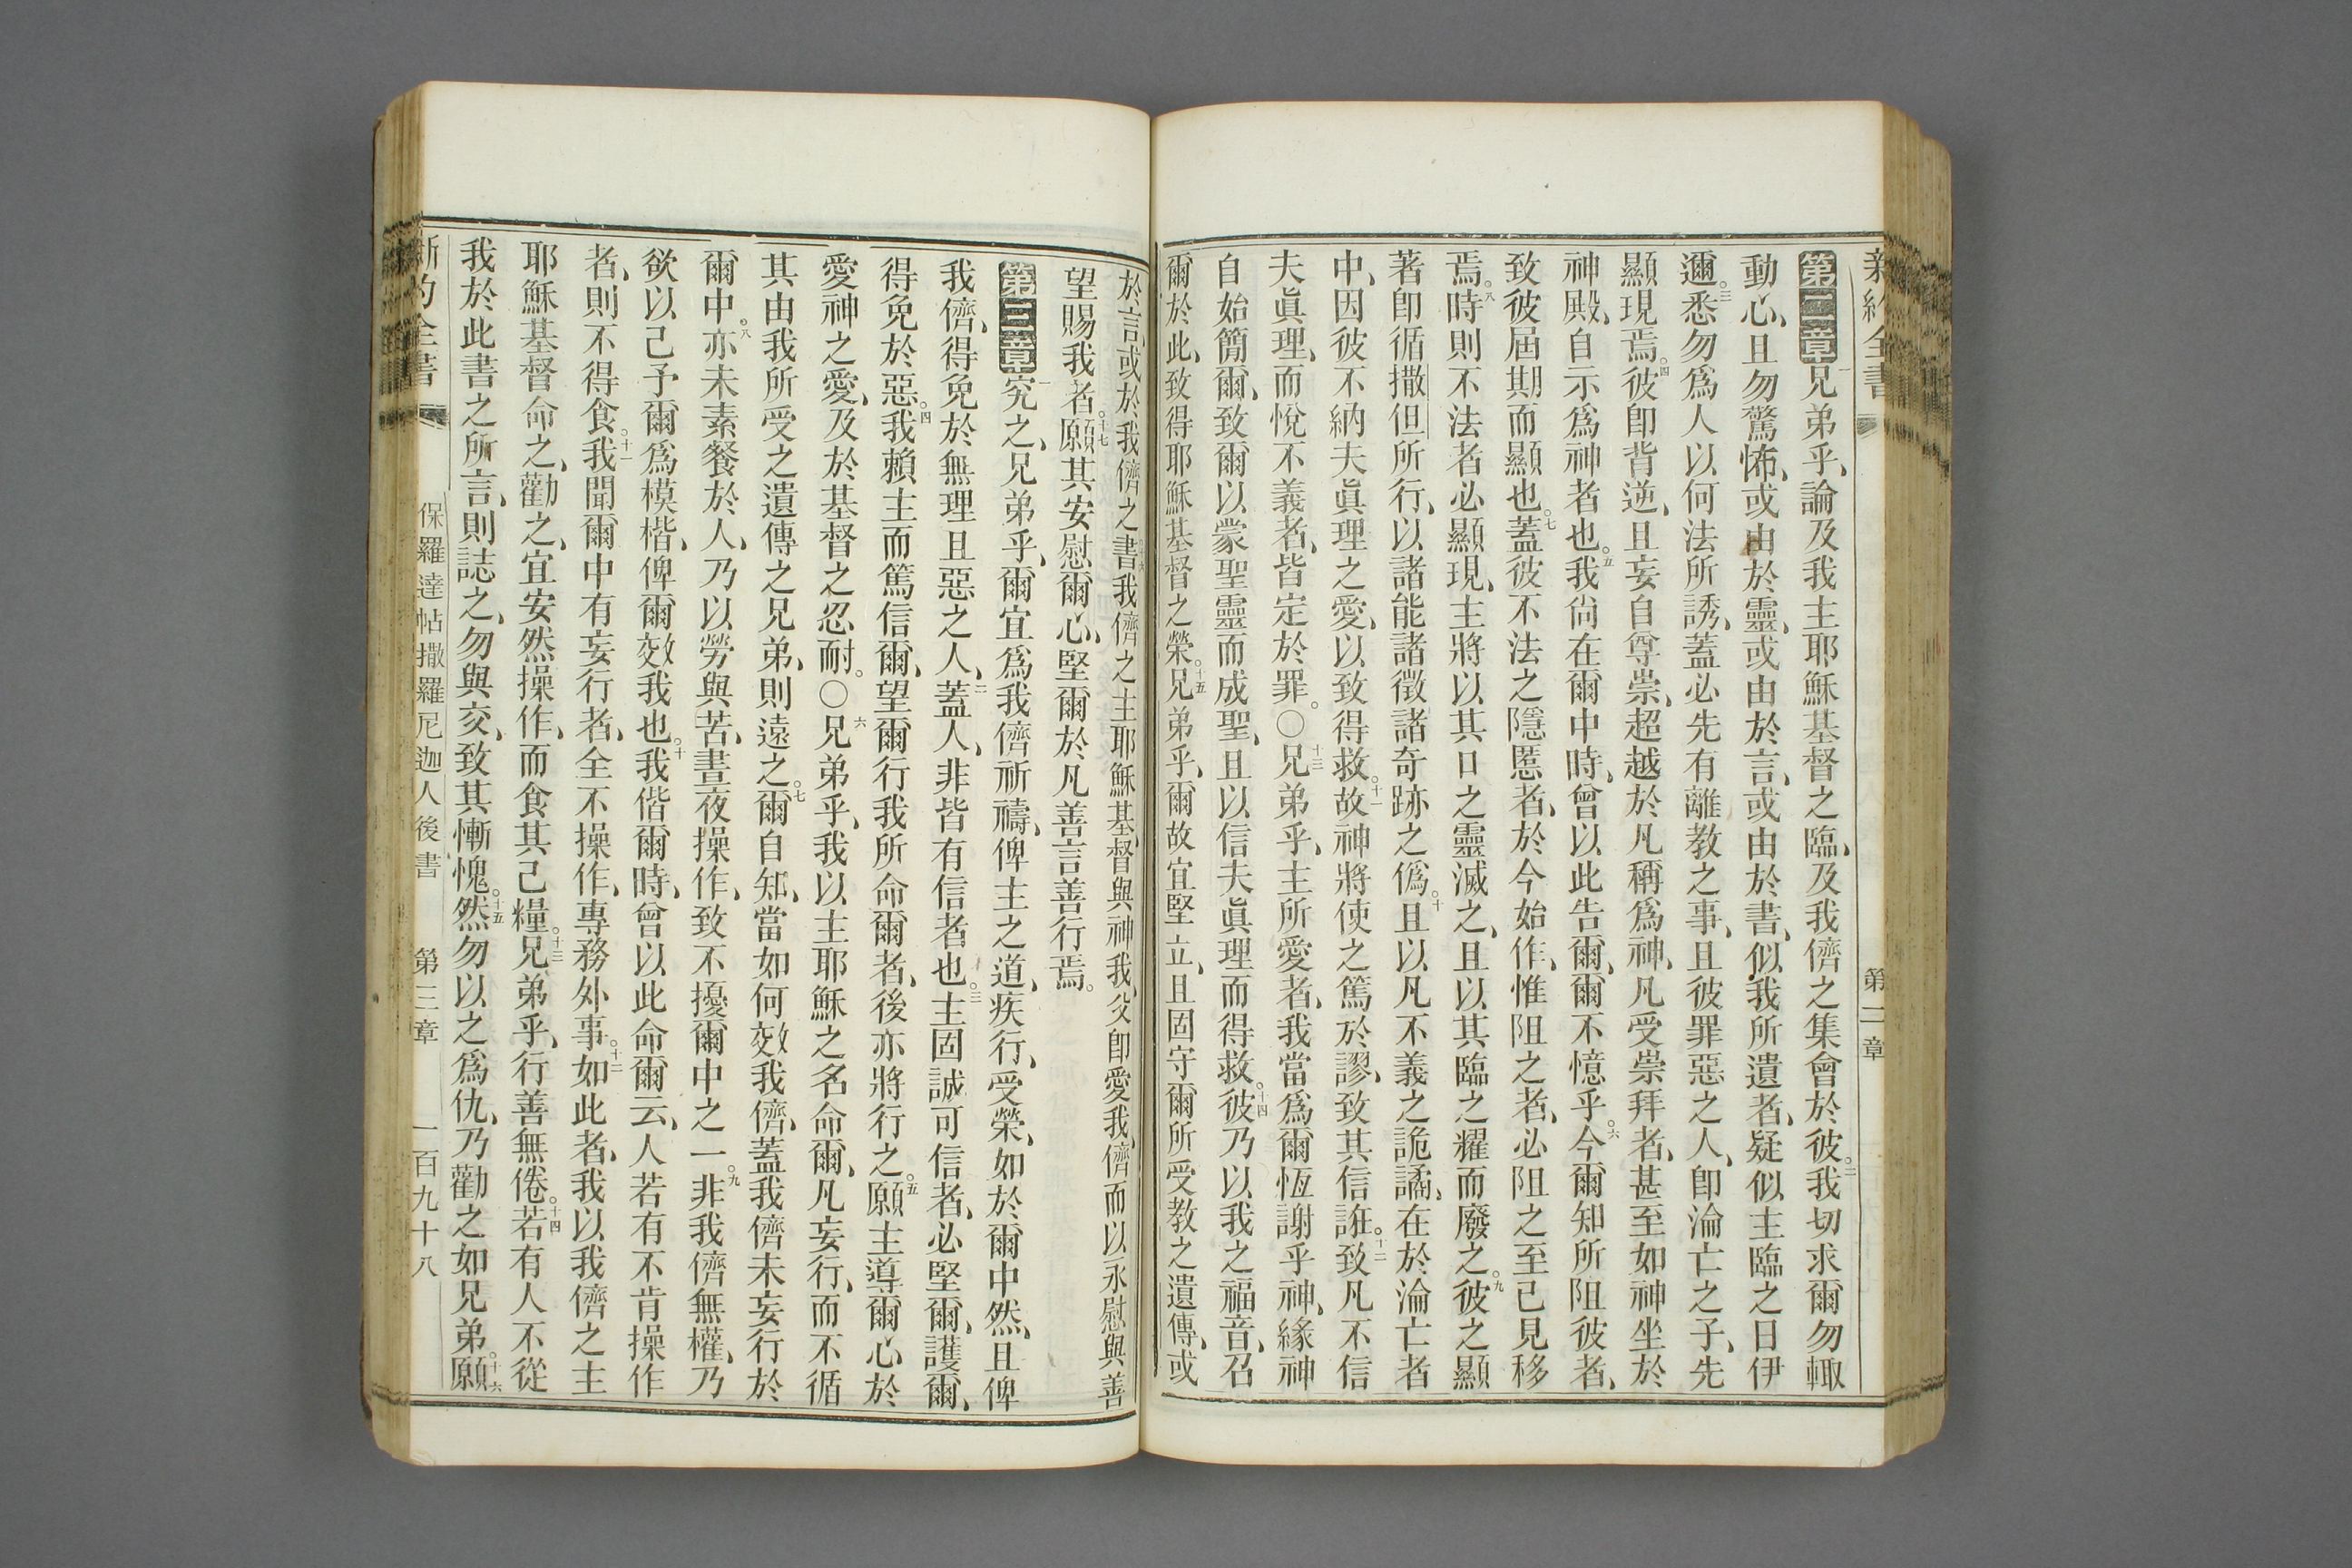 新約全書 第二章
第二章一兄弟乎、論及我主耶穌基督之臨、及我儕之集會於彼。二我切求爾勿輒
動心、且勿驚怖、或由於靈、或由於言、或由於書、似我所遺者、疑似主臨之日伊
邇。三悉勿爲人以何法所誘、蓋必先有離教之事、且彼罪惡之人、卽淪亡之子、先
顯現焉。四彼卽背逆、且妄自尊崇、超越於凡稱爲神、凡受崇拜者、甚至如神坐於
神殿、自示爲神者也。五我尙在爾中時、曾以此告爾、爾不憶乎。六今爾知所阻彼者、
致彼屆期而顯也。七蓋彼不法之隱慝者、於今始作、惟阻之者、必阻之至己見移
焉。八時則不法者必顯現、主將以其口之靈滅之、且以其臨之耀而廢之。九彼之顯
著卽循撒但所行、以諸能諸徵諸奇跡之僞。十且以凡不義之詭譎、在於淪亡者
中、因彼不納夫眞理之愛、以致得救。十一故神將使之篤於謬、致其信誑。十二致凡不信
夫眞理、而悅不義者、皆定於罪。○十三兄弟乎、主所愛者、我當爲爾恆謝乎神、緣神
自始簡爾、致爾以蒙聖靈而成聖、且以信夫眞理而得救。十四彼乃以我之福音、召
爾於此、致得耶穌基督之榮。十五兄弟乎、爾故宜堅立、且固守爾所受教之遺傳、或
於言、或於我儕之書。十六我儕之主耶穌基督、與神我父、卽愛我儕、而以永慰與善
望賜我者。十七願其安慰爾心、堅爾於凡善言善行焉。
第三章一究之、兄弟乎、爾宜爲我儕祈禱、俾主之道、疾行、受榮、如於爾中然、且俾
我儕、得免於無理且惡之人、二蓋人、非皆有信者也。三主固誠可信者、必堅爾、護爾、
得免於惡。四我賴主而篤信爾、望爾行我所命爾者、後亦將行之。五願主導爾心於
愛神之愛、及於基督之忍耐。○六兄弟乎、我以主耶穌之名命爾、凡妄行、而不循
其由我所受之遺傳之兄弟、則遠之。七爾自知、當如何效我儕、蓋我儕未妄行於
爾中。八亦未素餐於人、乃以勞與苦、晝夜操作、致不擾爾中之一。九非我儕無權、乃
欲以己予爾爲模楷、俾爾效我也。十我偕爾時、曾以此命爾云、人若有不肯操作
者、則不得食。十一我聞爾中有妄行者、全不操作、專務外事。十二如此者、我以我儕之主
耶穌基督命之、勸之、宜安然操作、而食其己糧。十三兄弟乎、行善無倦。十四若有人不從
我於此書之所言、則誌之、勿與交、致其慚愧。十五然勿以之爲仇、乃勸之如兄弟。十六願
新約全書 保羅達帖撒羅尼迦人後書 第三章 一百九十八